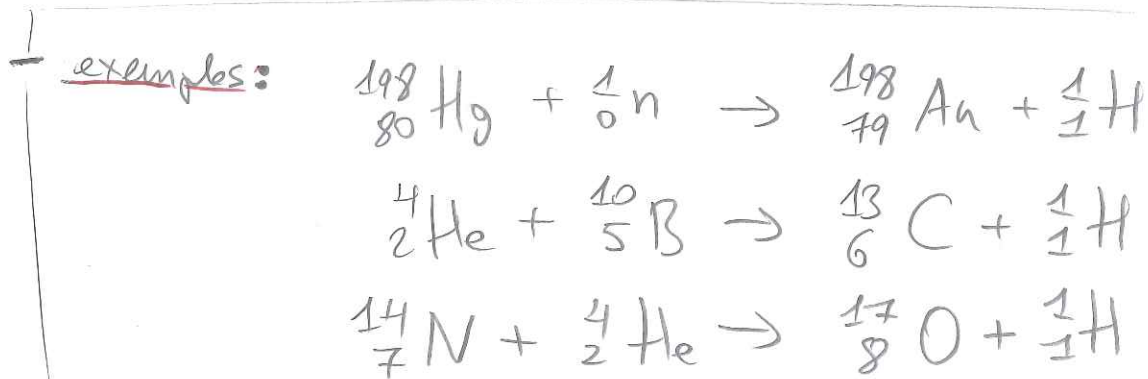 exemples: ¹⁹⁸₈₀Hg + ¹₀n → ¹⁹⁸₇₉Au + ¹₁H
⁴₂He + ¹⁰₅B → ¹³₆C + ¹₁H
¹⁴₇N + ⁴₂He → ¹⁷₈O + ¹₁H